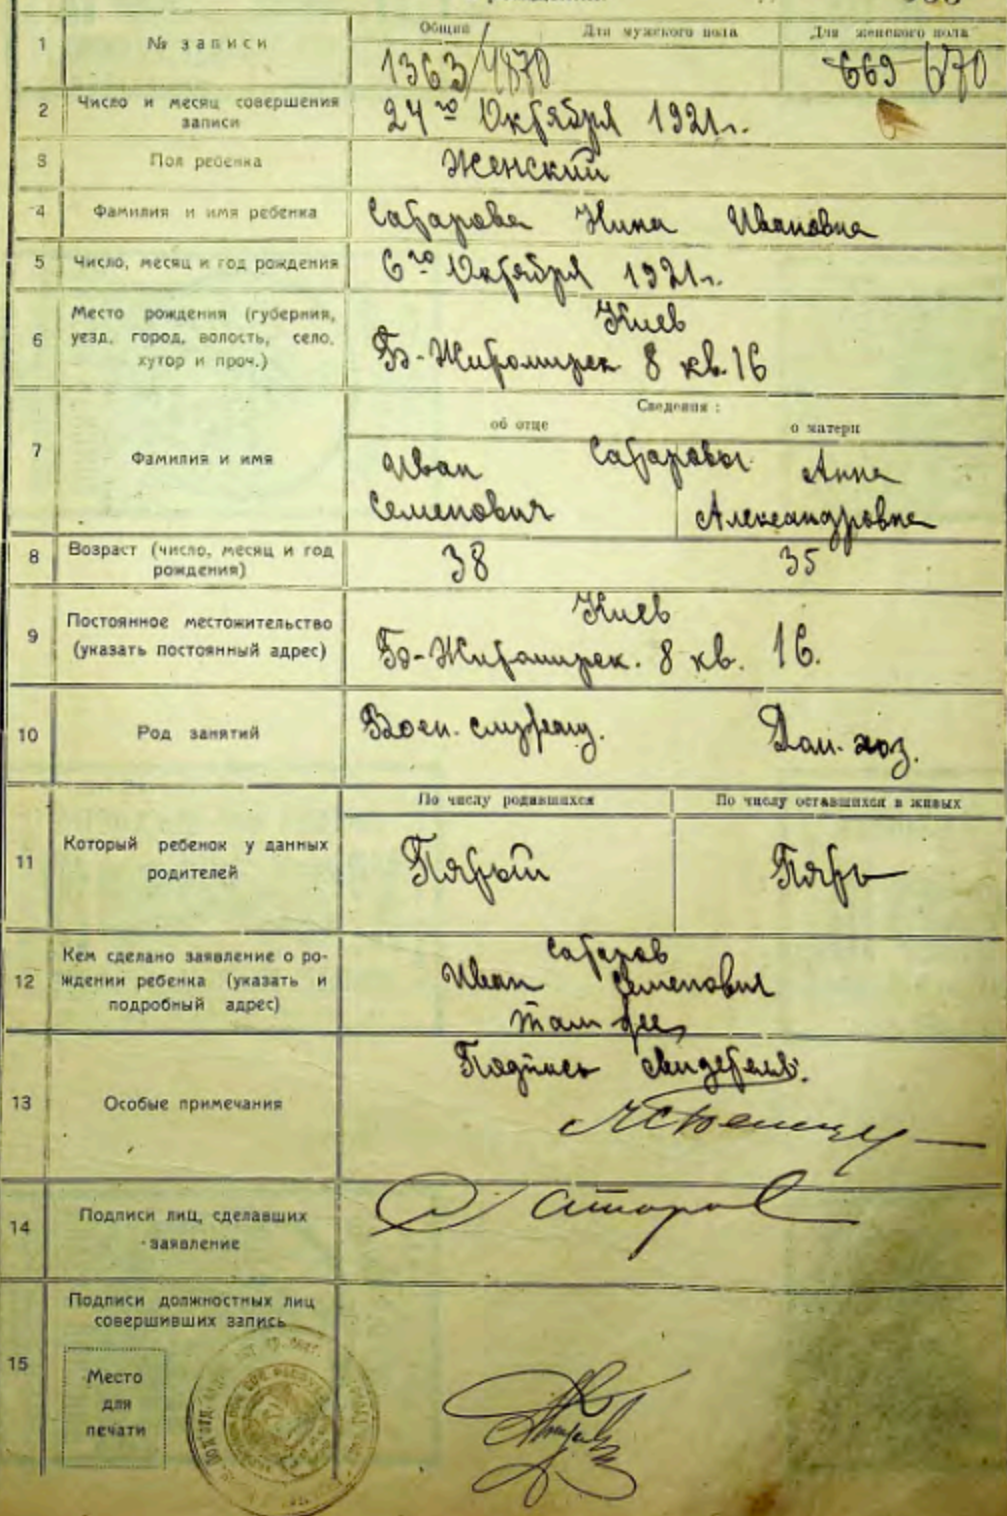 1
№ записи
Общий
Для мужского пола
Для женского пола
1363/4870
669 670
2
Число и месяц совершения
записи
24го Октября 1921г.
3
Пол ребенка
Женский
4
Фамилия и имя ребенка
Сатарова Нина Ивановна
5
Число, месяц и год рождения
6го Октября 1921г.
6
Место рождения (губерния,
уезд, город, волость, село,
хутор и проч.)
Киев
Б-Житомирск 8 кв. 16
7
Фамилия и имя
Сведения:
об отце
о матери
Сатаровы
Иван
Семенович
Анна
Александровна
8
Возраст (число, месяц и год
рождения)
38
35
9
Постоянное местожительство
(указать постоянный адрес)
Киев
Бо-Житомирск. 8 кв. 16.
10
Род занятий
Воен. служащ.
Дом. хоз.
11
Который ребенок у данных
родителей
По числу родившихся
По числу оставшихся в живых
Пятый
Пять
12
Кем сделано заявление о ро-
ждении ребенка (указать и
подробный адрес)
Сатаров
Иван Семенович
там же
13
Особые примечания
Подпись свидетеля.
14
Подписи лиц, сделавших
заявление
Сатаров
15
Подписи должностных лиц
совершивших запись
Место
для
печати